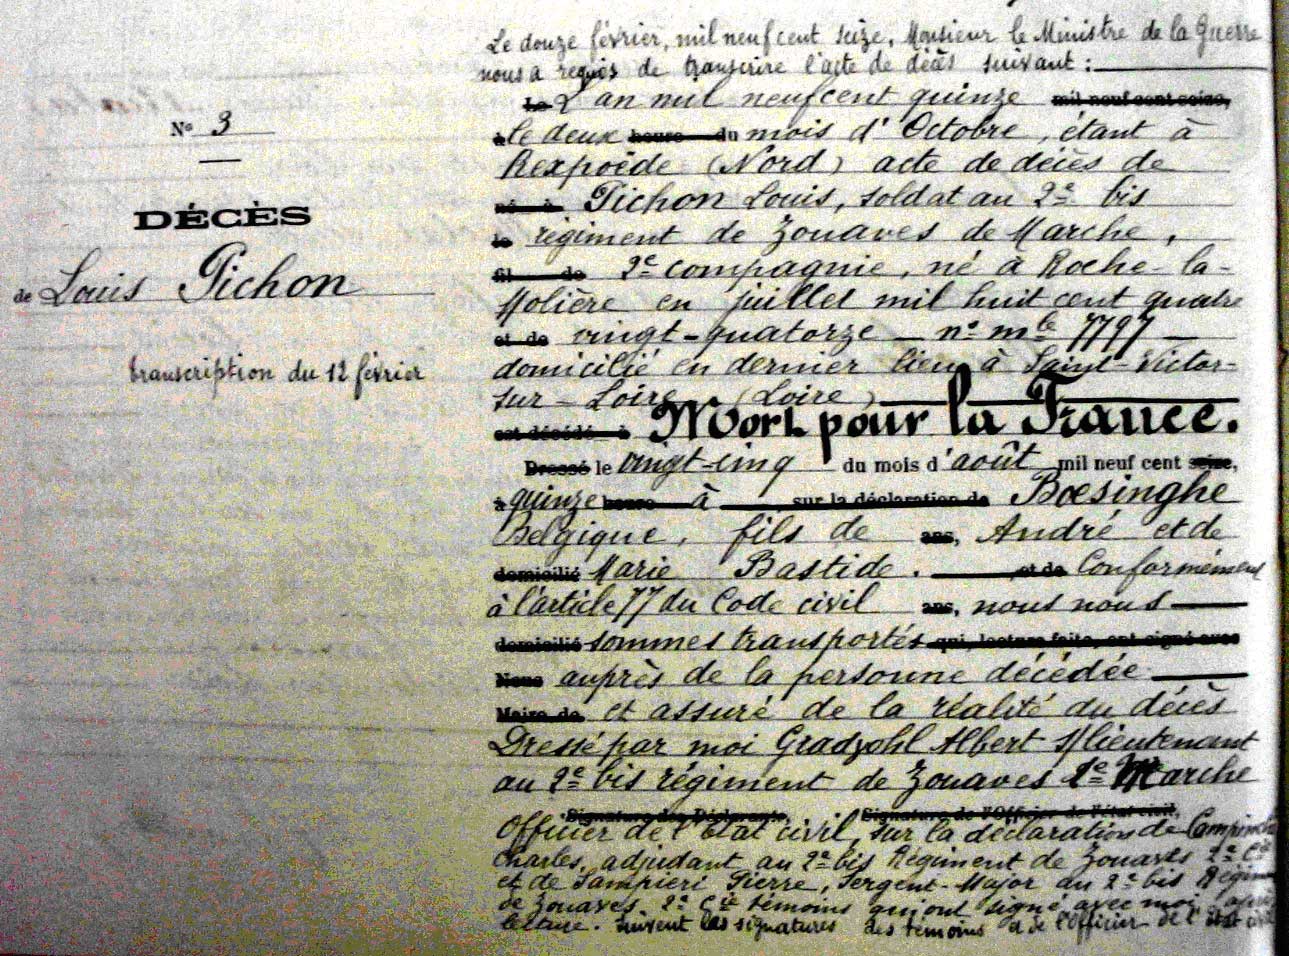 N° 3
DÉCÈS
de Louis Pichon
transcription du 12 février
Le douze février, mil neuf cent seize, Monsieur le Ministre de la Guerre
nous a requis de transcrire l'acte de décès suivant :
Le L'an mil neuf cent quinze mil neuf cent seize,
à le deux heure du mois d'Octobre, étant à
Rexpoëde (Nord) acte de décès de
né à Pichon Louis, soldat au 2e bis
le régiment de Zouaves de Marche,
fil de 2e compagnie, né à Roche-la-
Molière en juillet mil huit cent quatre
et de vingt-quatorze – n° mle 7797
domicilié en dernier lieu à Saint-Victor-
sur-Loire (Loire)
est décédé à Mort pour la France.
Dressé le vingt-cinq du mois d'août mil neuf cent seize,
à quinze heure à sur la déclaration de Boesinghe
Belgique, fils de ans, André et de
domicilié Marie Bastide. et de Conformément
à l'article 77 du Code civil ans, nous nous
domicilié sommes transportés qui, lecture faite, ont signé avec
Nous auprès de la personne décédée
Maire de et assuré de la réalité du décès
Dressé par moi Gradzohl Albert s/lieutenant
au 2e bis régiment de Zouaves de Marche
Signature des Déclarants, Signature de l'Officier de l'état civil,
Officier de l'Etat civil, sur la déclaration de
Charles, adjudant au 2e bis Régiment de Zouaves 2e Cie
et de Sampieri Pierre, Sergent-Major au 2e bis Régim
de Zouaves 2e Cie témoins qui ont signé avec moi après
lecture. Suivent les signatures des témoins et de l'Officier de l'état civil